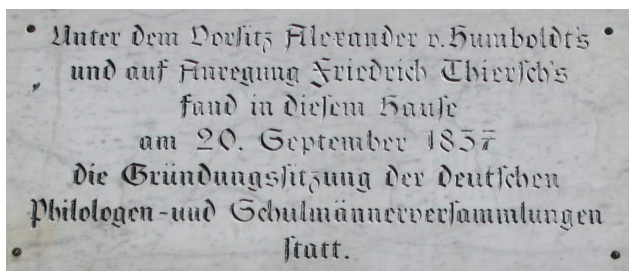 Unter dem Vorsitz Alexander v. Humboldt's
und auf Anregung Friedrich Thiersch's
fand in diesem Hause
am 20. September 1837
die Gründungssitzung der deutschen
Philologen-und Schulmännerversammlungen
statt.